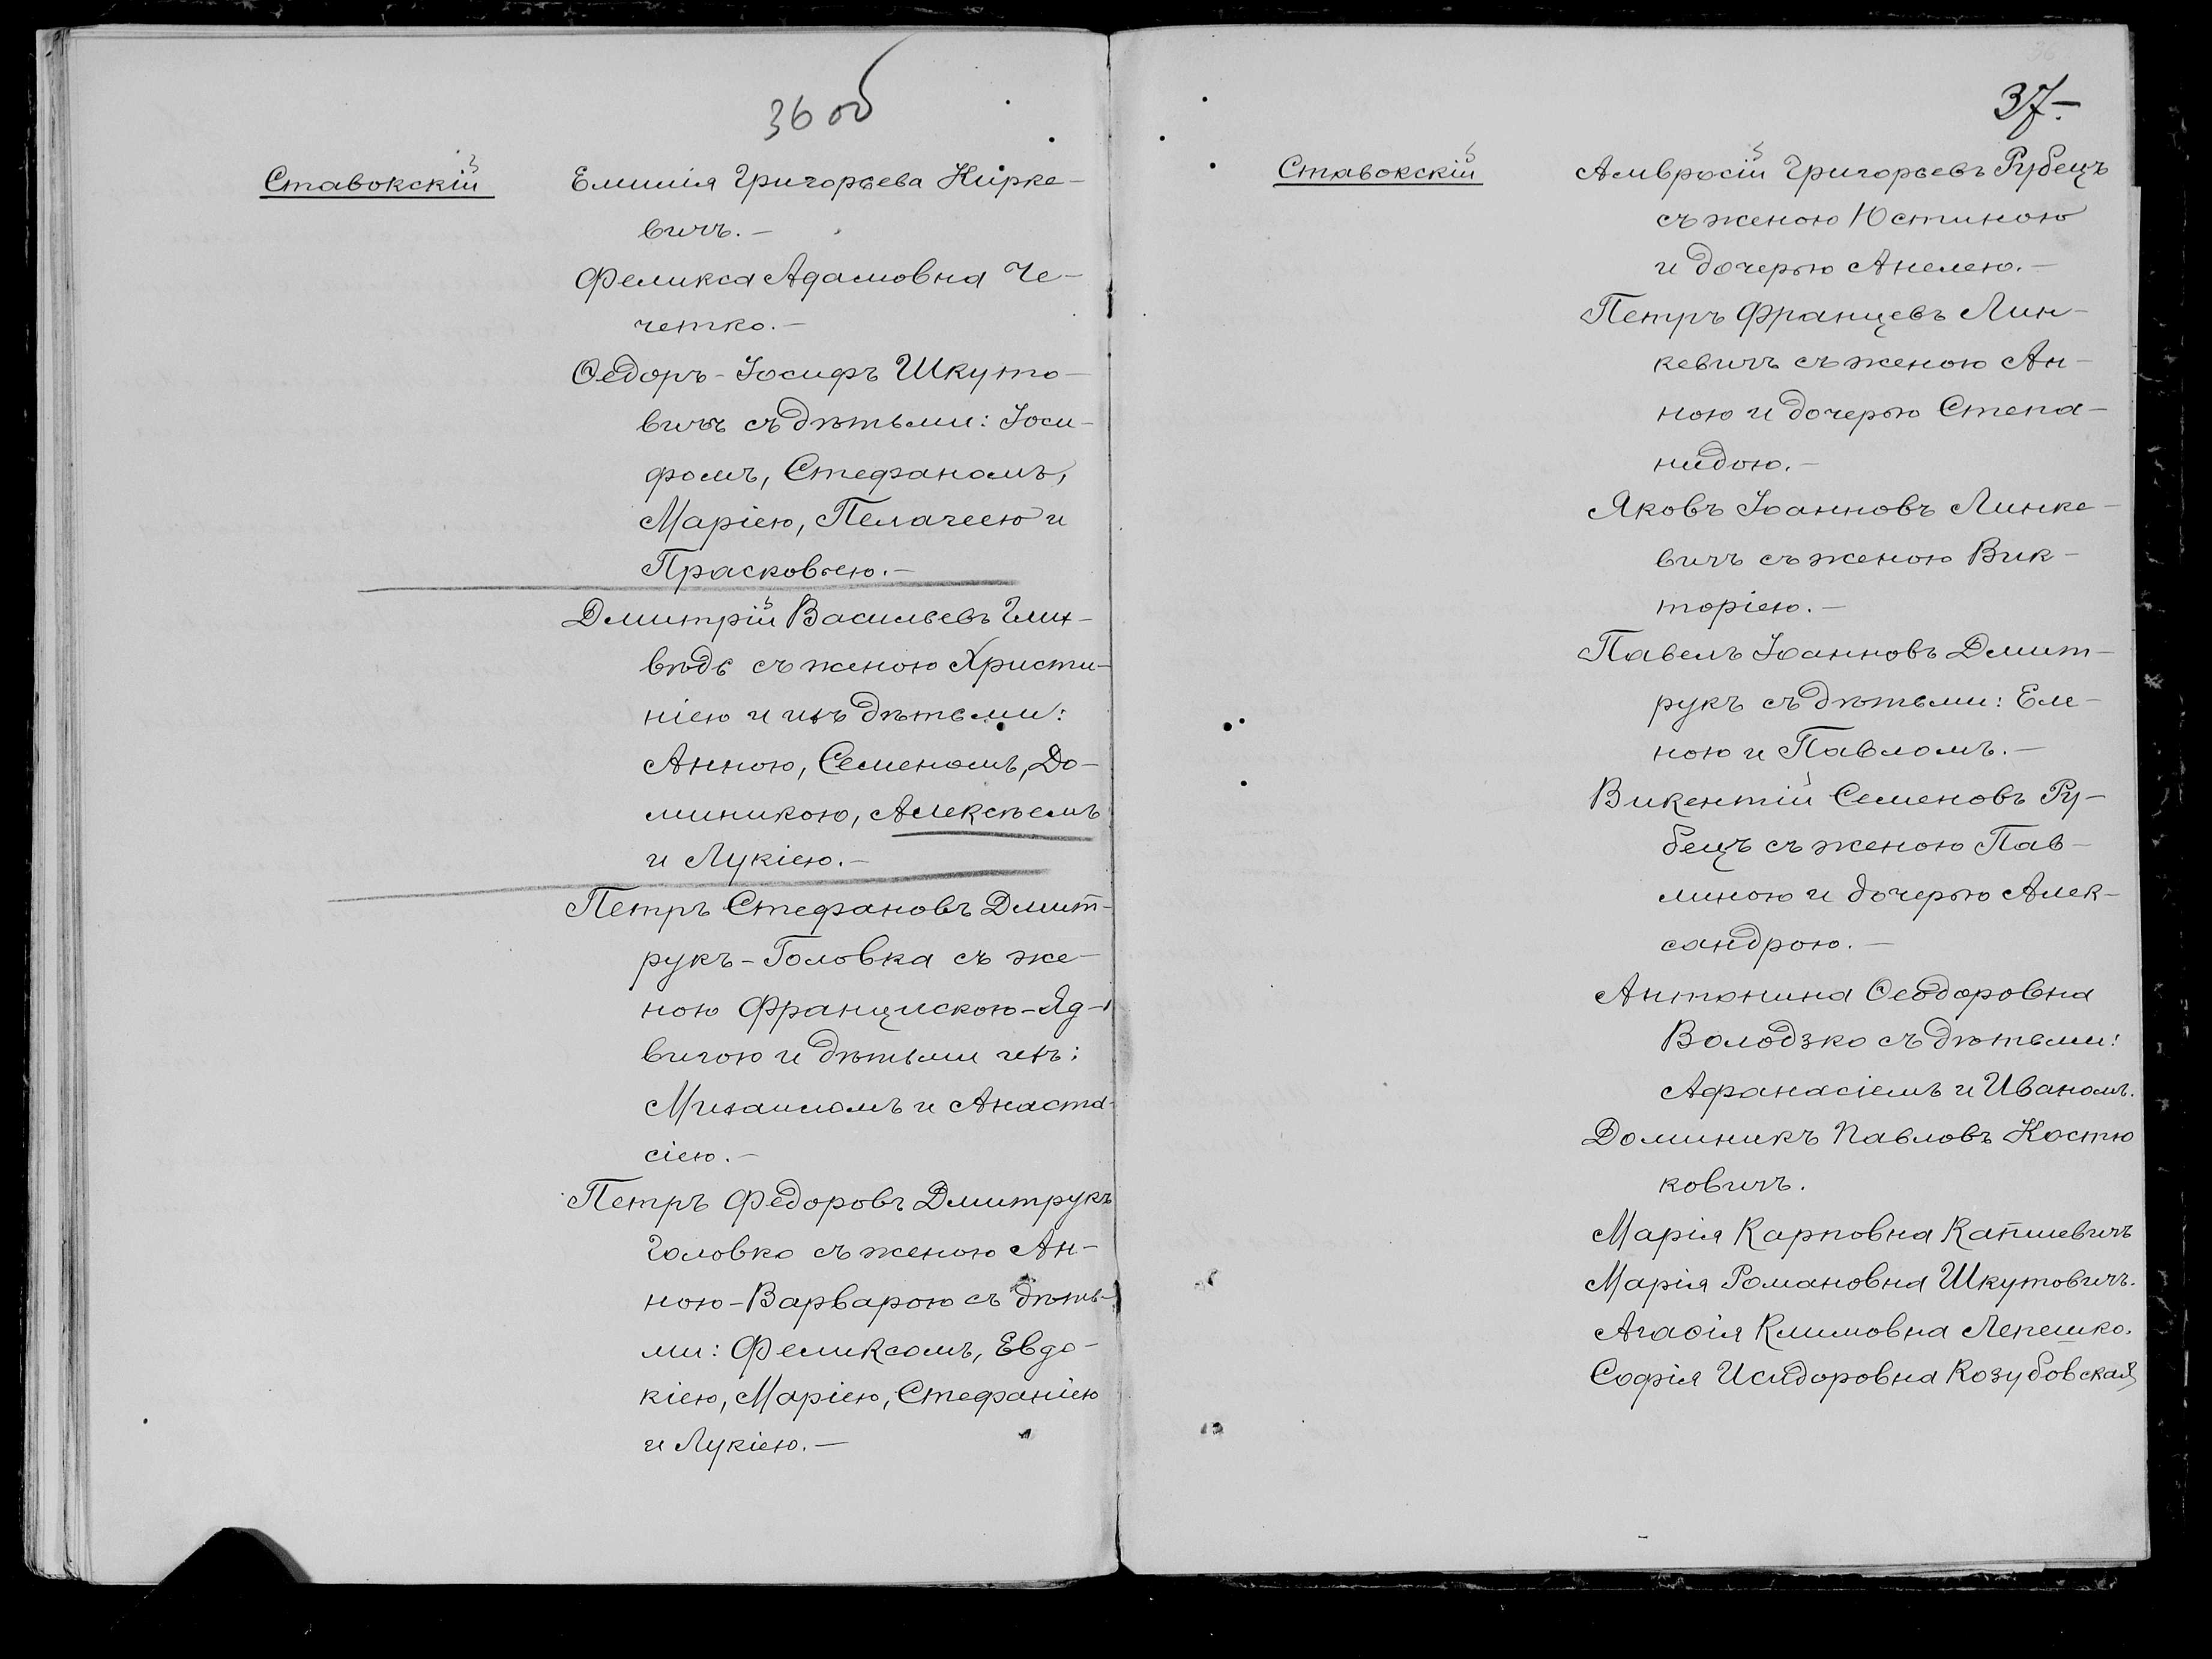 36 об
Ставокскій
Емилія Григорьева Кирке-
вичъ.-
Феликса Адамовна Че-
четко.-
Ѳедоръ-Іосифъ Шкуто-
вичъ съ дѣтьми: Іоси-
фомъ, Стефаномъ,
Маріею, Пелагеею и
Прасковьею.-
Дмитрій Васильевъ Глих-
вѣдь съ женою Христи-
ніею и ихъ дѣтьми:
Анною, Семеномъ, До-
миникою, Алексѣемъ
и Лукіею.-
Петръ Стефановъ Дмит-
рукъ-Головка съ же-
ною Францискою-Яд-
вигою и дѣтьми ихъ:
Михаиломъ и Анаста-
сіею.-
Петръ Федоровъ Дмитрукъ
Головко съ женою Ан-
ною-Варварою съ дѣть-
ми: Феликсомъ, Евдо-
кіею, Маріею, Стефаніею
и Лукіею.-
36
37.-
Ставокскій
Амвросій Григорьевъ Рубецъ
съ женою Юстиною
и дочерью Анелею.-
Петръ Францевъ Лин-
кевичъ съ женою Ан-
ною и дочерью Степа-
нидою.-
Яковъ Іоанновъ Линке-
вичъ съ женою Вик-
торіею.-
Павелъ Іоанновъ Дмит-
рукъ съ дѣтьми: Еле-
ною и Павломъ.-
Викентій Семеновъ Ру-
бецъ съ женою Пав-
линою и дочерью Алек-
сандрою.-
Антонина Ѳеодоровна
Володзко съ дѣтьми:
Афанасіемъ и Иваномъ.
Доминикъ Павловъ Костю
ковичъ.
Марія Карповна Капшевичъ
Марія Романовна Шкутовичъ.
Агаѳія Климовна Лепешко.
Софія Исидоровна Козубовская